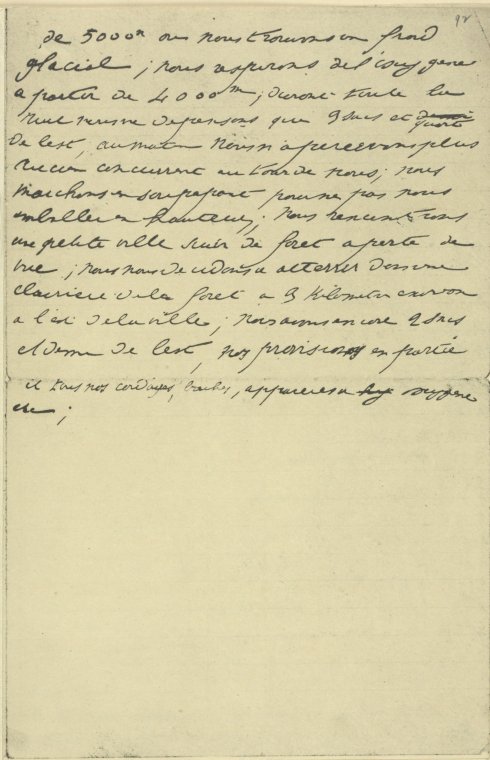 98
de 5000m ou nous trouvons un froid
glacial ; nous respirons de l'oxygene
a partir de 4000m ; durant toute la
nuit nous ne depensons que 3 sacs et quart
de lest, au matin nous n'apercevons plus
aucun concurrent autour de nous ; nous
marchons en soupapant pour ne pas nous
emballer en hauteur ; nous rencontrons
une petite ville suivi de foret a perte de
vue ; nous nous decidons a atterrir dans une
clairiere de la foret a 3 kilometres environ
a l'est de la ville ; nous avons encore 2 sacs
et demi de lest, nos provisions en partie
et tous nos cordages, baches, appareils a oxygene
etc ;